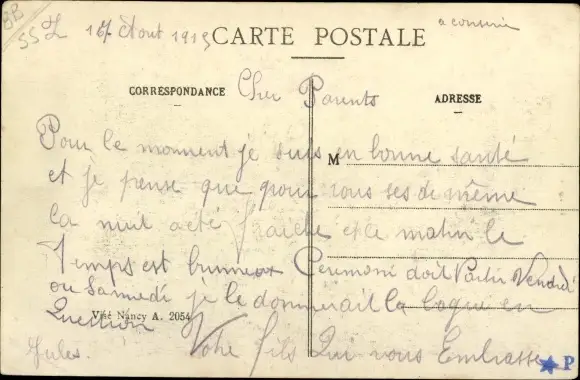 BB
SSZ
16 Aout 1915
CARTE POSTALE
a conserver
CORRESPONDANCE
ADRESSE
Cher Parents
M
Pour le moment je suis en bonne santé
et je pense que pour vous ses de même
la nuit a été fraiche et le matin le
Temps est brumeux Cerimoni doit Partir Vendredi
ou Samedi je le donnerait la loque en
Question Votre fils Qui vous Embrasse
Visé Nancy A. 2054
Jules.
P